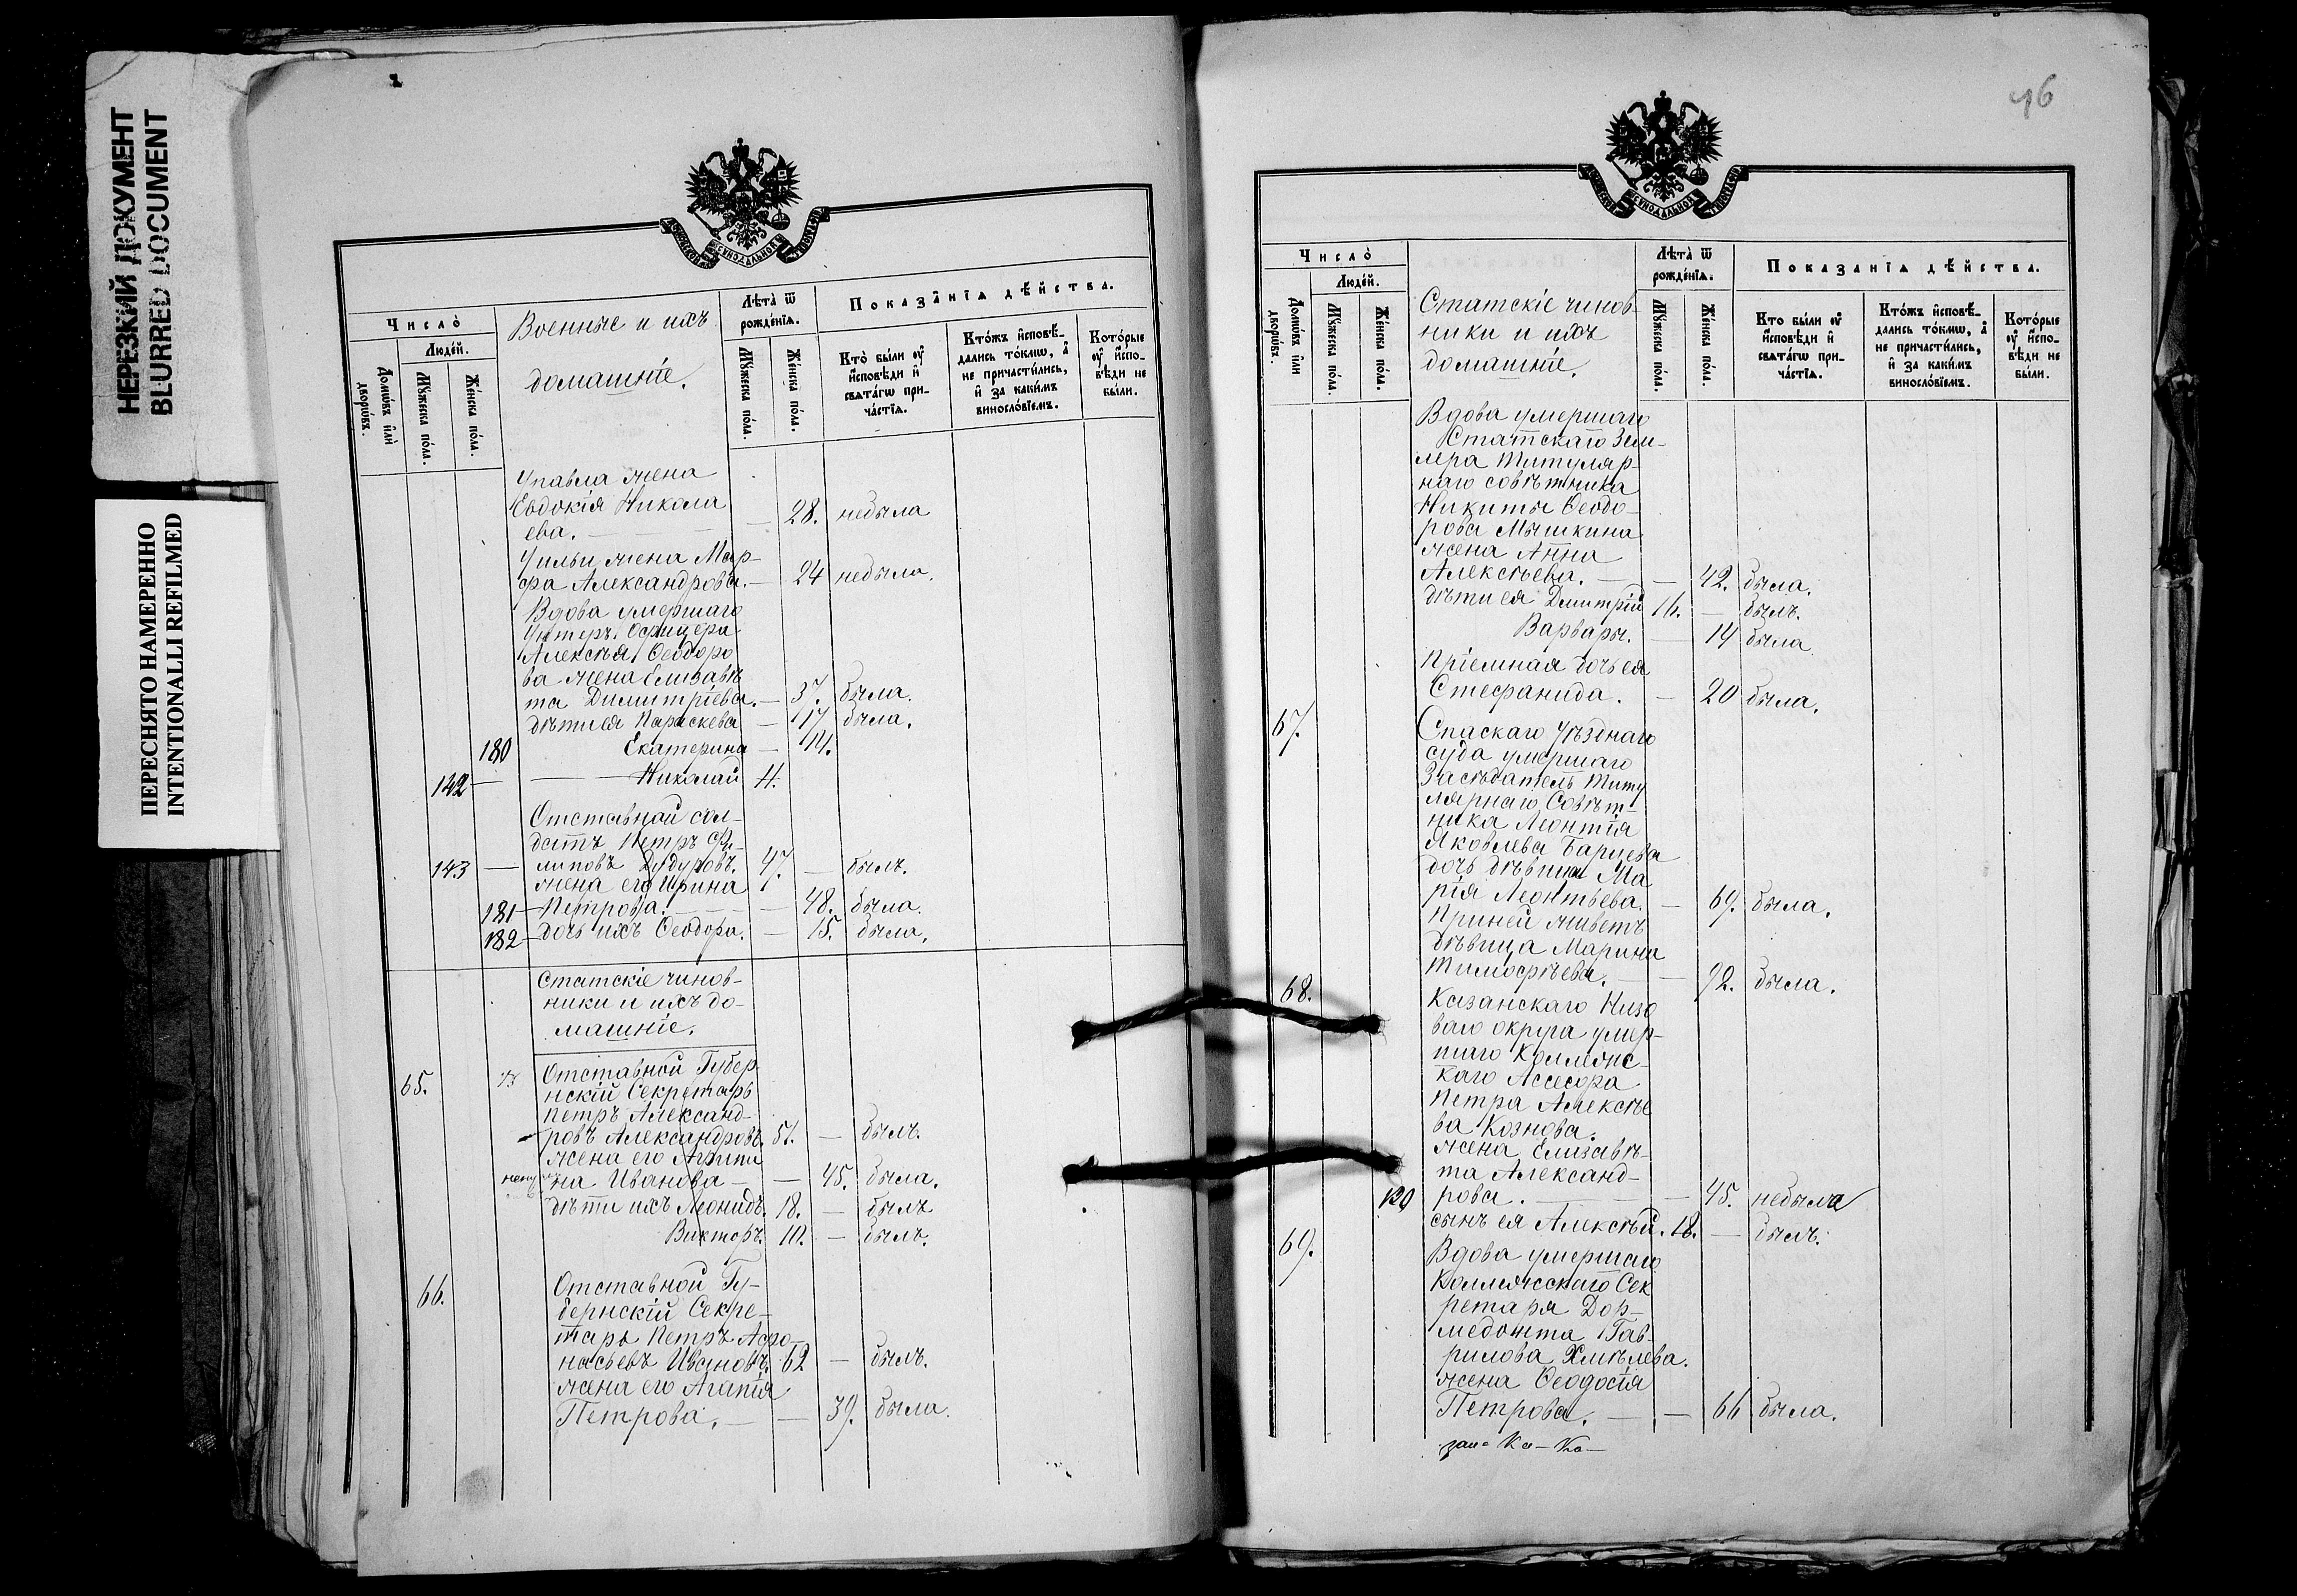 НЕРЕЗКИЙ ДОКУМЕНТ
BLURRED DOCUMENT
ПЕРЕСНЯТО НАМЕРЕННО
INTENTIONALLI REFILMED
Число̀
Людей.
Домѡвъ илѝ дворѡвъ.
Мꙋжеска пола.
Женска пола.
Военные и ихъ
домашніе.
Лѣта̀ ѿ
рожденїѧ.
Мꙋжеска пола.
Женска пола.
Показанїѧ дѣйства.
Кто̀ были оу҆
исповѣди и҆
свѧтагѡ при-
частїѧ.
Ктожъ исповѣ-
дались токмѡ, а҆
не причастились,
и҆ за какимъ
винословїемъ.
Которые
оу҆ испо-
вѣди не
были.
У павла жена
Евдокія Никола
ева. — 28. небыла
У ильи жена Мар-
фа Александрова. — 24 небыла.
Вдова умершаго
Унтеръ. Офицера
Алексѣя Ѳеодоро
ва жена Елизавѣ
та Димитріева. — 37. была.
дѣти ея Параскева — 17 была.
180 Екатерина — 14.
142 — Николай 4.
Отставной сол-
датъ Петръ Фи-
143 — липовъ Дудуровъ. 47. — былъ.
жена его Ирина
181 — Петрова. — 48. была.
182 — дочь ихъ Ѳеодора. — 15. была.
Статскіе чинов-
ники и ихъ до-
машніе.
65. Отставной Губер
нскій Секретарь
Петръ Александ-
ровъ Александровъ. 51. — былъ.
жена его Агрипи
на Иванова — — 45. была.
дѣти ихъ Леонидъ. 18. — былъ
Викторъ. 10. — былъ.
66. Отставной Гу-
бернскій Секре-
тарь Петръ Афо-
насьевъ Ивановъ. 62 — былъ.
жена его Агапія
Петрова. — — 39. была.
46
Число̀
Людей.
Домѡвъ илѝ дворѡвъ.
Мꙋжеска пола.
Женска пола.
Статскіе чинов-
ники и ихъ
домашніе.
Лѣта̀ ѿ
рожденїѧ.
Мꙋжеска пола.
Женска пола.
Показанїѧ дѣйства.
Кто были оу҆
исповѣди и҆
свѧтагѡ при-
частїѧ.
Ктожъ исповѣ-
дались токмѡ, а҆
не причастились,
и҆ за какимъ
винословїемъ.
Которые
оу҆ испо-
вѣди не
были.
Вдова умершаго
Статскаго Зем-
лера Титуляр-
наго совѣтника
Никиты Ѳеодо-
рова Мышкина
жена Анна
Алексѣева. — — 42. была.
дѣти ея Димитрій 16. — былъ.
Варвары. — 14 была
Пріемная дочь ея
Стефанида. — 20 была.
67. Спаскаго Уѣзднаго
суда умершаго
Засѣдатель Титу
лярнаго Совѣт-
ника Леонтія
Яковлева Барцева
дочь дѣвица Ма
рія Леонтьева. — 69. была.
При ней живетъ
дѣвица Марина
Тимофѣева. — — 92. была.
68. Казанскаго Низо
ваго округа умер-
шаго Коллежс-
каго Ассесора
Петра Алексѣе
ва Кознова.
жена Елизавѣ-
та Александ-
120 рова. — — 45. небыла
сынъ ея Алексѣй. 18. — былъ.
69. Вдова умершаго
Коллежсскаго Сек
ретаря Дор-
медонта Гав-
рилова Хмѣлева.
жена Ѳеодосія
Петрова. — — 66 была.